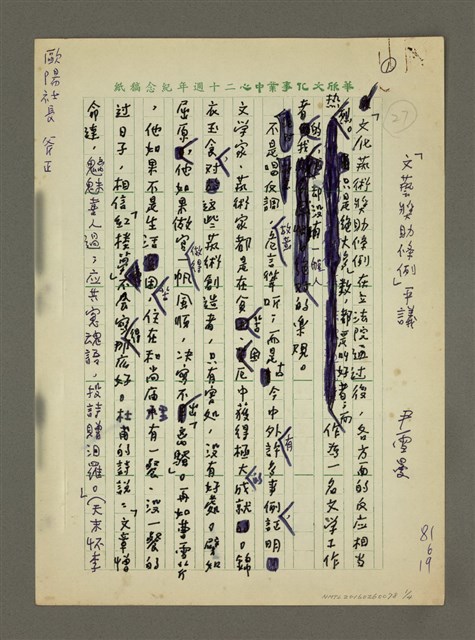 華欣文化事業中心二十週年紀念稿紙
歐陽社長 斧正
27
「文藝獎助條例」平議
尹雪曼
81
6
19
「文化藝術獎助條例」在立法院通過後，各方面的反應相當
熱烈。只是絕大多數，都是叫好者；而
作為一名文學工作
者的我，都沒有一般人的樂觀。
不是唱反調，故意危言聳聽；而是古今中外有許多事例證明，
文學家、藝術家都是在貧苦困厄中獲得極大的成就。錦
衣玉食對這些藝術創造者，只有害處，沒有好處。譬如
屈原，他如果做官做得一帆風順，決寫不出「離騷」。再如曹雪芹
，他如果不是生活困苦，住在和尚庙有一餐、沒一餐的
過日子，相信「紅樓夢」不會寫得那麼好。杜甫的詩說：「文章憎
命達，魑魅喜人過；应共冤魂語，投詩贈汨羅。」（天末怀李
NMTL20160260078 1/4